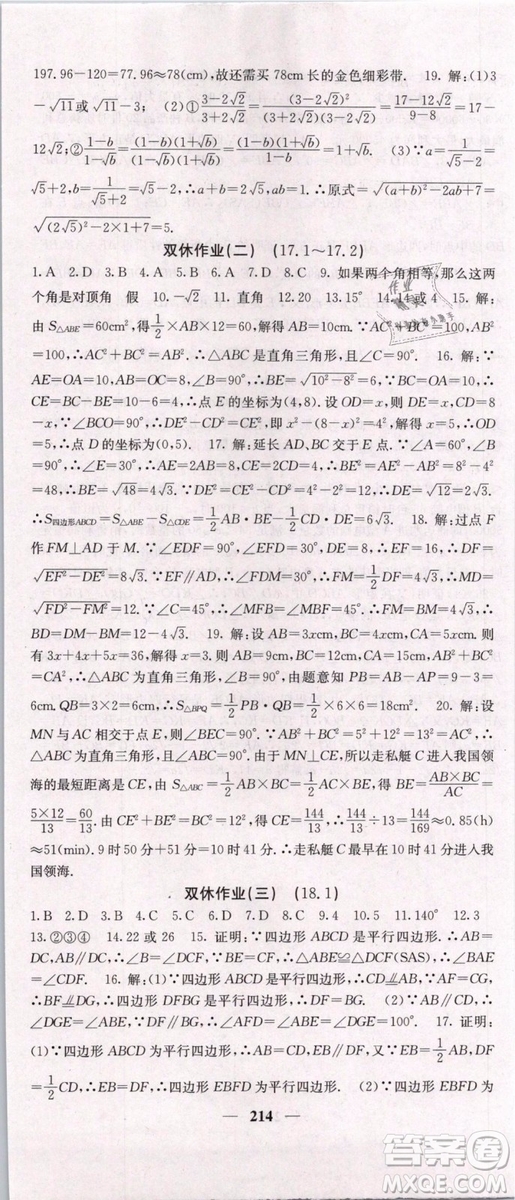 197.96-120=77.96≈78(cm),故还需买 78cm 长的金色细彩带. 19. 解:(1)3
-√11或√11-3; (2)①(3-2√2)/(3+2√2)=(3-2√2)²/((3+2√2)(3-2√2))=(17-12√2)/(9-8)=17-
12√2;②(1-b)/(1-√b)=((1-b)(1+√b))/((1-√b)(1+√b))=((1-b)(1+√b))/(1-b)=1+√b. (3)∵a=1/(√5-2)=
√5+2,b=1/(√5+2)=√5-2,∴a+b=2√5,ab=1,∴原式=√((a+b)²-2ab+7)=
√((2√5)²-2×1+7)=5.
双休作业(二) (17.1~17.2)
1.A 2.D 3.B 4.A 5.B 6.D 7.B 8.C 9.如果两个角相等,那么这两
个角是对顶角 假 10.-√2 11.直角 12.20 13.15° 14.14或4 15.解:
由 S△ABE=60cm²,得1/2×AB×12=60.∴AB=10.又∵AC²+BC²=100,AB²=
100,∴AC²+BC²=AB²,∴△ABC 是直角三角形,∴∠C=90°. 16.解:∵
AE=OA=10,AB=OC=8,∠B=90°,∴BE=√(10²-8²)=6.∵BC=OA=10,∴
CE=BC-BE=10-6=4,∴点 E 的坐标为(4,8).设 OD=x,则 DE=x,CD=8
-x,∵∠BCO=90°,∴DE²-CD²=CE²,即 x²-(8-x)²=4²,解得 x=5,∴OD
=5,∴点 D 的坐标为(0,5). 17.解:延长 AD、BC 交于 E 点.∵∠A=60°,∠B
=90°,∴∠E=30°,∴AE=2AB=8,CE=2CD=4,∴BE²=AE²-AB²=8²-4²
=48,∴BE=√48=4√3.∵DE²=CE²-CD²=4²-2²=12,∴DE=√12=2√3.
∴S四边形ABCD=S△ABE-S△CDE=1/2AB·BE-1/2CD·DE=6√3. 18.解:过点 F
作 FM⊥AD 于 M.∵∠EDF=90°,∠E=60°,∴∠EFD=30°.∵DE=8,∴DF=
√(EF²-DE²)=8√3.∵EF∥AD,∴∠FDM=∠DFE=30°,∴FM=1/2DF=4√3,MD=
√(FD²-FM²)=12.∵∠C=45°,∴∠MFB=∠MBF=45°,∴MB=FM=4√3,∴
BD=DM-BM=12-4√3. 19.解:设 AB=3xcm,BC=4xcm,CA=5xcm.则
有 3x+4x+5x=36,解得 x=3.∴AB=9cm,BC=12cm,CA=15cm.∵AB²+BC²
=CA²,∴△ABC 为直角三角形,∠B=90°,由题意知 PB=AB-AP=9-3=
6cm.BQ=3×2=6cm,∴S△BPQ=1/2PB·BQ=1/2×6×6=18cm². 20.解:设
MN 与 AC 相交于点 E,则∠BEC=90°.∵AB²+BC²=5²+12²=13²=AC²,∴
△ABC 为直角三角形,且∠ABC=90°.由于 MN⊥CE,所以走私艇 C 进入我国领
海的最短距离是 CE,由 S△ABC=1/2AB×BC=1/2AC×BE,得 BE=(AB×BC)/AC=
(5×12)/13=60/13.由 CE²+BE²=BC²=12²,得 CE=144/13,∴144/13÷13=144/169≈0.85(h)
≈51(min).9 时 50 分+51 分=10 时 41 分.走私艇 C 最早在 10 时 41 分进入我
国领海.
双休作业(三) (18.1)
1.B 2.D 3.D 4.B 5.C 6.C 7.C 8.C 9.4 10.5 11.140° 12.3
13.②③④ 14.22 或 26 15.证明:∵四边形 ABCD 是平行四边形,∴AB=
DC,AB∥DC,∴∠BAE=∠DCF,∴△BAE≌△DCF(SAS),∴∠BAE
=∠CDF. 16.解:(1)∵四边形 ABCD 是平行四边形,∴AB⫽CD.∵AF=CG,∴
BF=DG,∴BF⫽DG,∴四边形 DFBG 是平行四边形. (2)∵四边形 DFBG 是
平行四边形,∴DF∥BG,∴∠DGE=∠AFD.∵AB∥CD,∴∠ABE=∠DGE,∴
∠DGE=∠ABE=∠AFD=100°. 17.证明:
(1)∵四边形 ABCD 为平行四边形,∴AB∥DF,即 EB∥DF,又∵EB=1/2AB,DF
=1/2CD,∴EB=DF,∴四边形 EBFD 为平行四边形. (2)∵四边形 EBFD 为
214